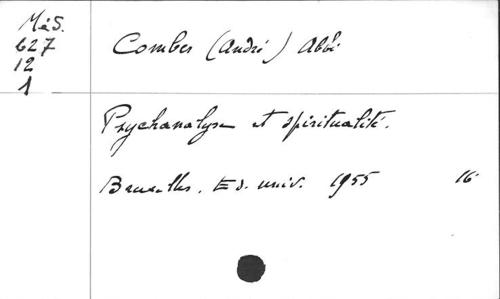 Més.
627
12
1
Combes (André) Abbé
Psychanalyse et spiritualité.
Bruxelles. Ed. univ. 1955 16